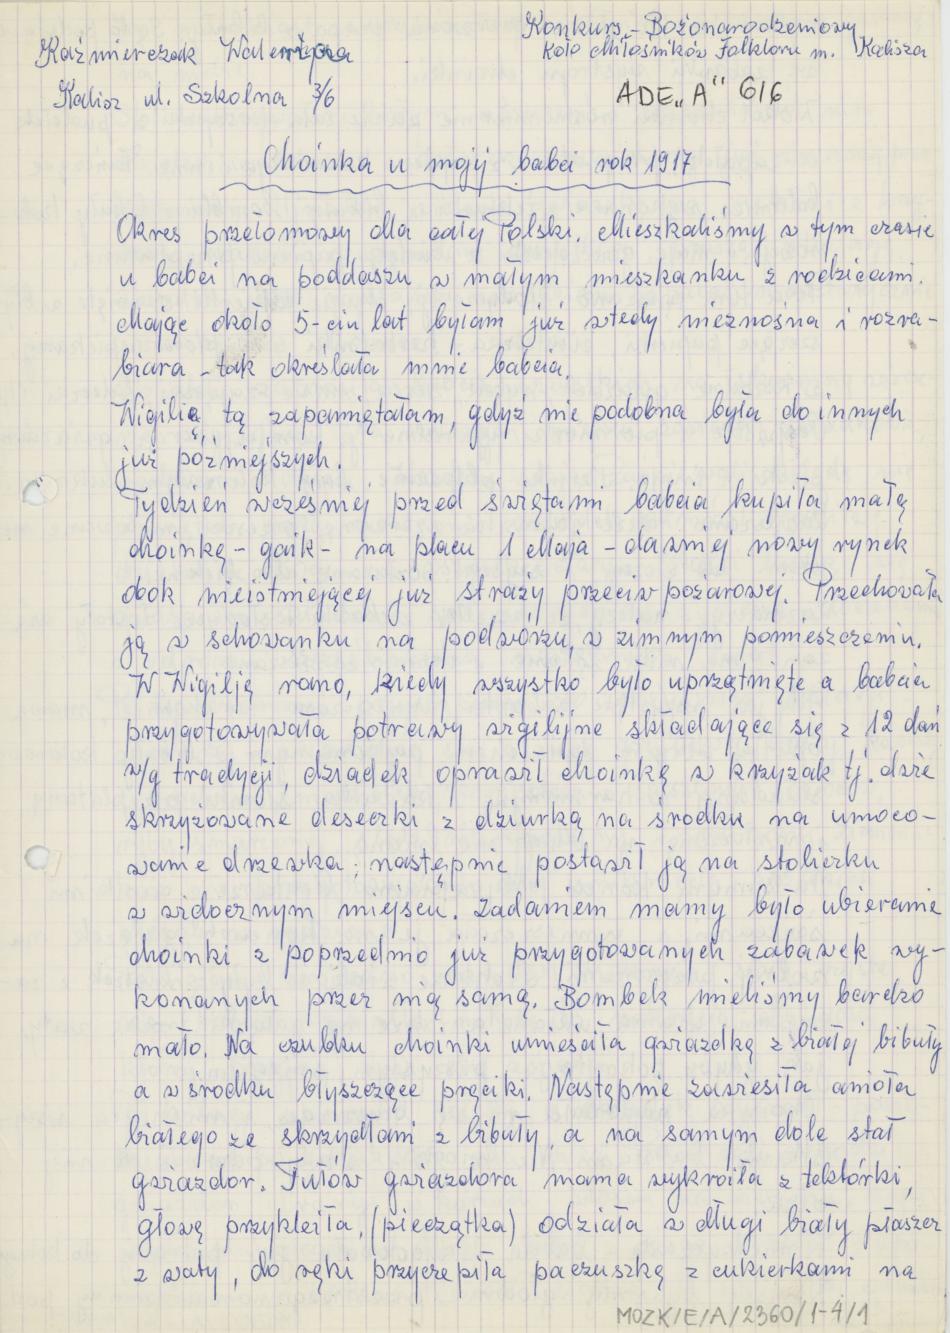 Kaźmierczak Waleryja
Kalisz ul. Szkolna 3/6
Konkurs - Bożonarodzeniowy
Koło Miłośników Folkloru m. Kalisza
ADE„A" 616
Choinka u mojej babci rok 1917
Okres przełomowy dla całej Polski. Mieszkaliśmy w tym czasie
u babci na poddaszu w małym mieszkanku z rodzicami.
Mając około 5-ciu lat byłam już wtedy nieznośna i rozra-
biara - tak określała mnie babcia.
Wigilię tą zapamiętałam, gdyż nie podobna była do innych
już późniejszych.
Tydzień wcześniej przed świętami babcia kupiła małą
choinkę - gaik - na placu 1 Maja - dawniej nowy rynek
obok nieistniejącej już straży przeciwpożarowej. Przechowała
ją w schowanku na podwórzu, w zimnym pomieszczeniu.
W Wigilję rano, kiedy wszystko było uprzątnięte a babcia
przygotowywała potrawy wigilijne składające się z 12 dań
w/g tradycji, dziadek oprawił choinkę w krzyżak tj. dwie
skrzyżowane deseczki z dziurką na środku na umoco-
wanie drzewka; następnie postawił ją na stoliczku
w widocznym miejscu. Zadaniem mamy było ubieranie
choinki z poprzednio już przygotowanych zabawek wy-
konanych przez nią samą. Bombek mieliśmy bardzo
mało. Na czubku choinki umieściła gwiazdkę z białej bibuły
a w środku błyszczące pręciki. Następnie zawiesiła anioła
białego ze skrzydłami z bibuły, a na samym dole stał
gwiazdor. Tułów gwiazdora mama wykroiła z tektórki,
głowę przykleiła, (pieczątka) odziała w długi biały płaszcz
z waty, do ręki przyczepiła paczuszkę z cukierkami na
MOZK/E/A/2360/1-4/1